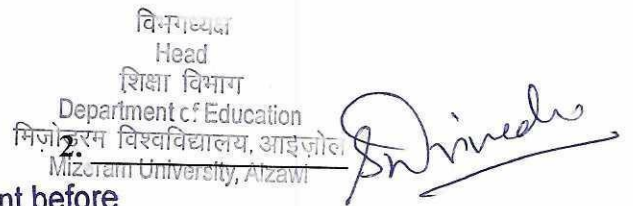 विभागाध्यक्ष
Head
शिक्षा विभाग
Department of Education
मिज़ोरम विश्वविद्यालय, आइज़ोल
2.
Mizoram University, Aizawl
nt before